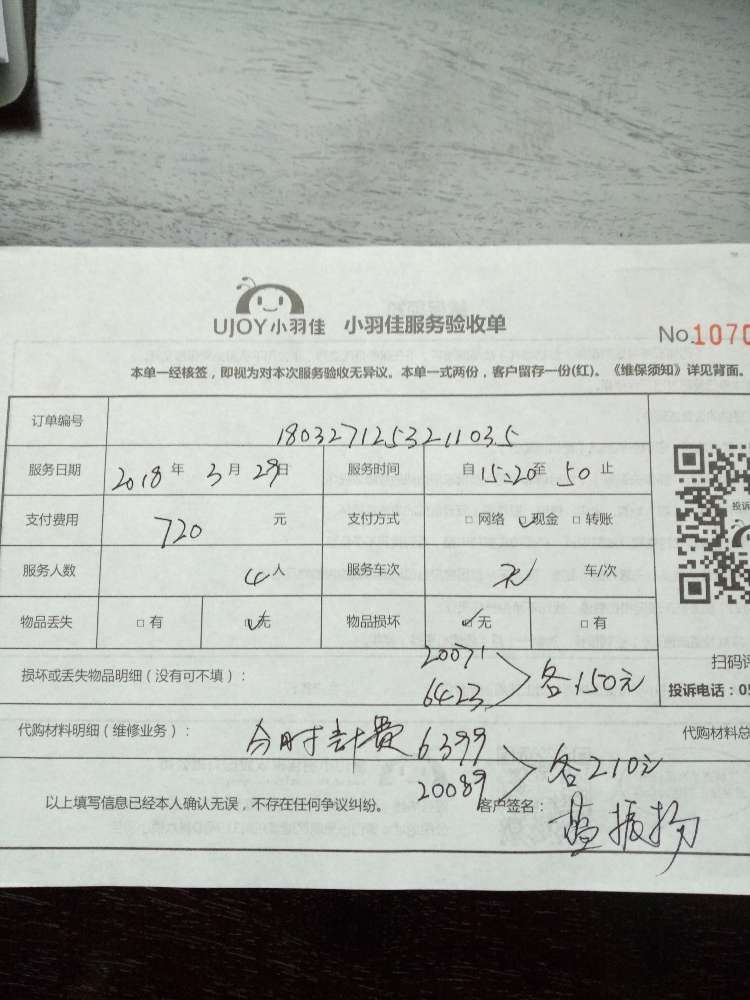 UJOY小羽佳 小羽佳服务验收单
No.1070
本单一经核签，即视为对本次服务验收无异议。本单一式两份，客户留存一份(红)。《维保须知》详见背面。
订单编号 1803271253211035
服务日期 2018年3月29日 服务时间 自15:20至 50止
支付费用 720元 支付方式 □网络 ☑现金 □转账
服务人数 4人 服务车次 无 车/次
物品丢失 □有 ☑无 物品损坏 ☑无 □有
投诉
扫码评
损坏或丢失物品明细（没有可不填）：
20071
6423 各150元
投诉电话：05
代购材料明细（维修业务）： 代购材料总
计费 6399
20089 各210元
以上填写信息已经本人确认无误，不存在任何争议纠纷。 客户签名：